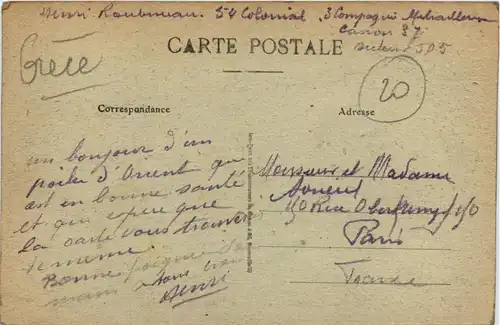 Henri 54 Colonial, 3 Compagnie Mitrailleur
Canon 37
secteur 505
CARTE POSTALE
Grèce
20
Correspondance
Adresse
un bonjour d'un
poilu d'Orient qui
est en bonne santé
et qui espere que
la carte vous trouvera
de meme.
Bonne poignée de
main
Henri
Monsieur et Madame
150 Rue Oberkampf 150
Paris
France